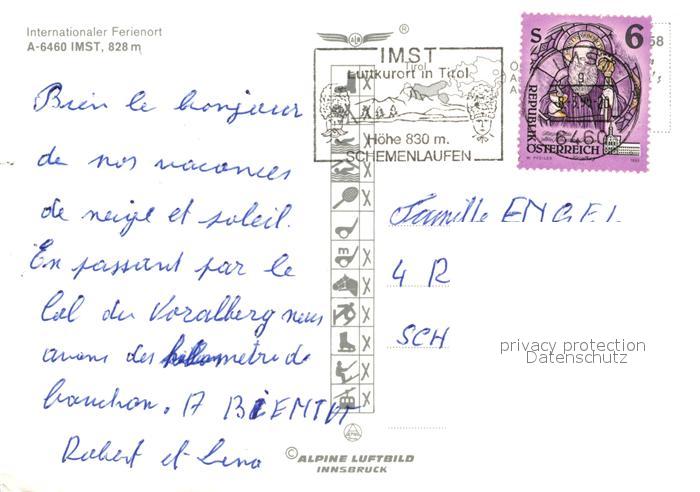 Internationaler Ferienort
A-6460 IMST, 828 m
®
IMST
Tirol
Luftkurort in Tirol
Höhe 830 m.
SCHEMENLAUFEN
S 6
REPUBLIK
ÖSTERREICH
6460
58
Bien le bonjour
de nos vacances
de neige et soleil.
En passant par le
Col du Voralberg nous
avons des kilometre de
bouchon. A BIENTOT
Robert et Lina
Famille ENGEL
4 R
SCH
privacy protection
Datenschutz
© ALPINE LUFTBILD
INNSBRUCK